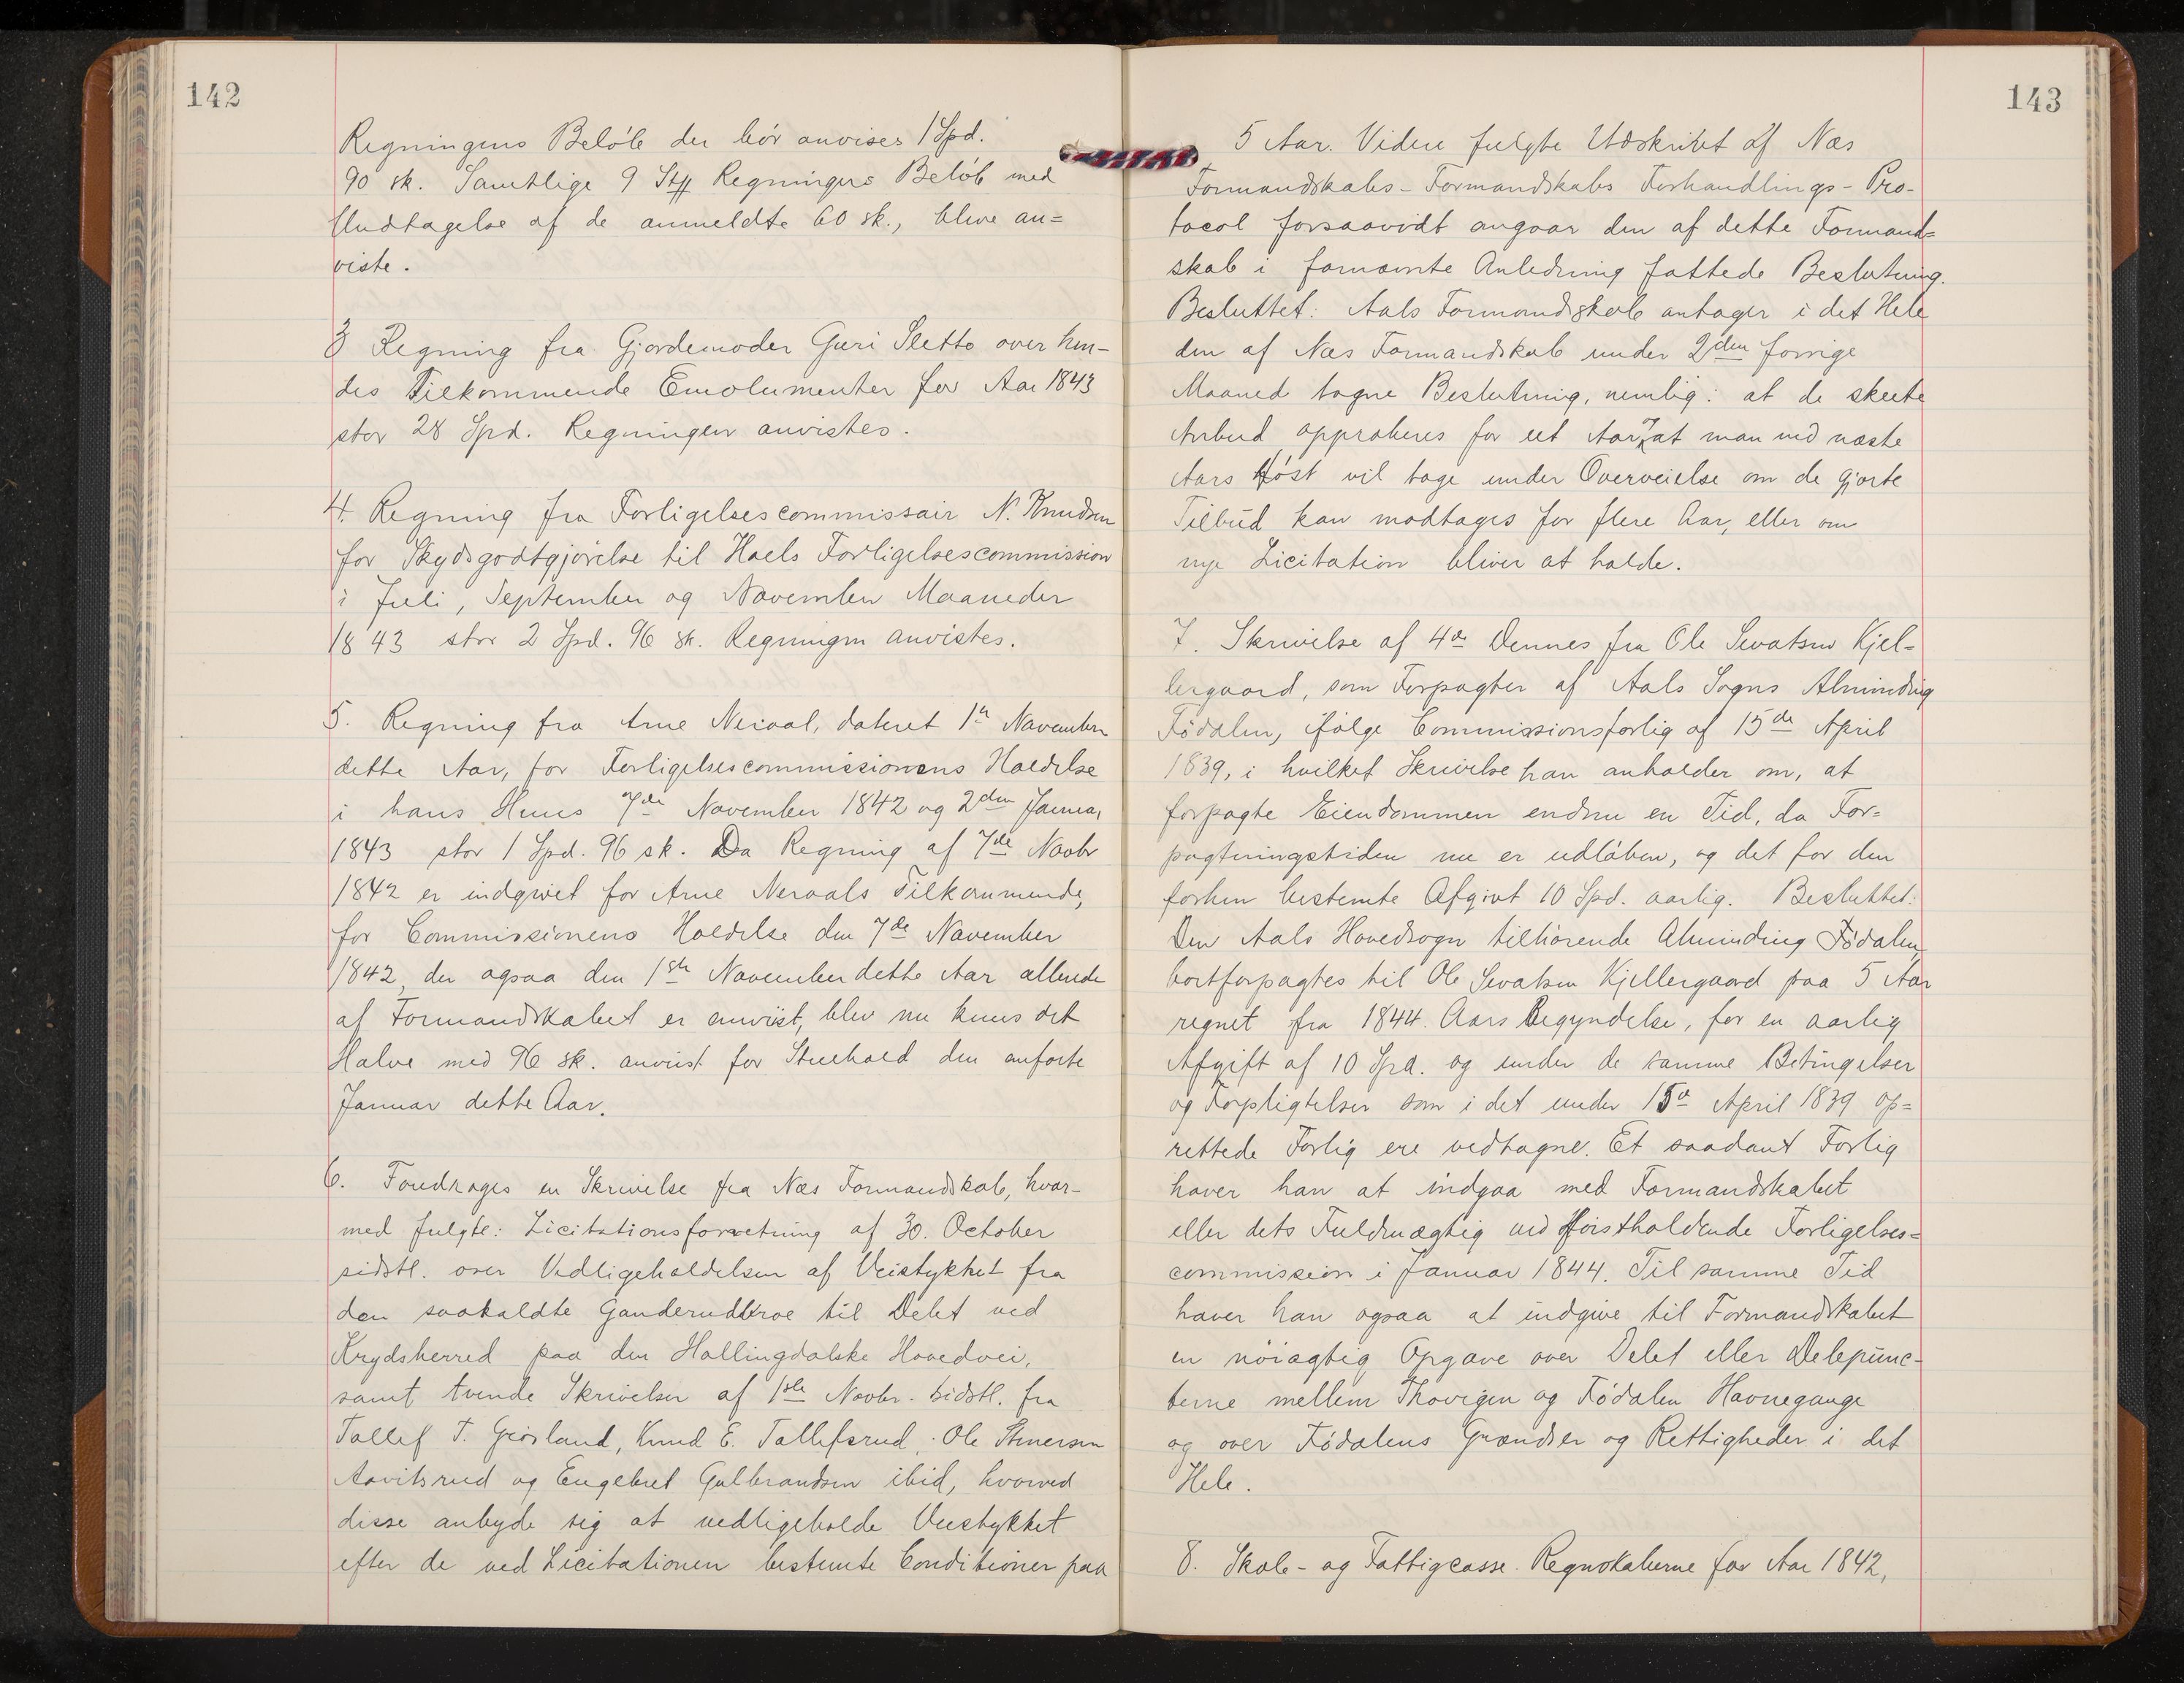 142
Regningens Beløb der bør anvises 1 Spd.
90 sk. Samtlige 9 Stk Regningers Beløb med
Undtagelse af de anmeldte 60 sk., blive an=
viste.
3 Regning fra Gjordemoder Guri Sletto over hen-
des Tilkommende Emolumenter for Aar 1843
stor 28 Spd. Regningen anvistes.
4. Regning fra Forligelsescommissair N. Knudsen
for Skydsgodtgjørelse til Hoels Forligelsescommission
i Juli, September og November Maaneder
1843 stor 2 Spd. 96 sk. Regningen anvistes.
5. Regning fra Arne Neraal, dateret 1ste November
dette Aar, for Forligelsescommissionens Holdelse
i hans Huus 7de November 1842 og 2den Januar
1843 stor 1 Spd. 96 sk. Da Regning af 7de Novbr
1842 er indgivet for Arne Neraals Tilkommende,
for Commissionens Holdelse den 7de November
1842, der ogsaa den 1ste November dette Aar allerede
af Formandskabet er anvist, blev nu kuns det
Halve med 96 sk. anviist for Steehold den anførte
Januar dette Aar.
6. Foredrages en Skrivelse fra Næs Formandskab, hvor-
med fulgte: Licitationsforretning af 30. October
sidstl. over Vedligeholdelsen af Veistykket fra
den saakaldte Ganderudkroe til Delet ved
Krydsherred paa den Hallingdalske Hovedvei,
samt tvende Skrivelser af 1ste Novbr. sidstl. fra
Tollef T. Grøsland, Knud E. Tollefsrud, Ole Stenersen
Aavitsrud og Engebret Gulbrandsen ibid, hvorved
disse anbyde sig at vedligeholde Veistykket
efter de ved Licitationen bestemte Conditioner paa
143
5 Aar. Videre fulgte Udskrivt af Næs
Formandskabs-Formandskabs Forhandlings-Pro-
tocol forsaavidt angaar den af dette Formand=
skab i fornævnte Anledning fattede Beslutning.
Besluttet: Aals Formandskab antager i det Hele
den af Næs Formandskab under 2den forrige
Maaned tagne Beslutning, nemlig: at de skeete
Anbud approberes for eet Aar, at man ved næste
Aars Høst vil tage under Overveielse om de gjorte
Tilbud kan modtages for flere Aar, eller om
nye Licitation bliver at holde.
7. Skrivelse af 4de Dennes fra Ole Sevatsen Kjel=
lergaard, som Forpagter af Aals Sogns Alminding
Fødalen, ifølge Commissionsforlig af 15de April
1839, i hvilket Skrivelse han anholder om, at
forpagte Eiendommen endnu en Tid, da For=
pagtningstiden nu er udløben, og det for den
forhen bestemte Afgivt 10 Spd. aarlig. Besluttet:
Den Aals Hovedsogn tilhørende Alminding Fødalen,
bortforpagtes til Ole Sevatsen Kjellergaard paa 5 Aar
regnet fra 1844 Aars Begyndelse, for en aarlig
Afgift af 10 Spd. og under de samme Betingelser
og Forpligtelser som i det under 15de April 1839 op=
rettede Forlig ere vedtagne. Et saadant Forlig
haver han at indgaa med Formandskabet
eller dets Fuldmægtig ved førstholdende Forligelses=
commission i Januar 1844. Til samme Tid
haver han ogsaa at indgive til Formandskabet
en nøiagtig Opgave over Delet eller Delepunc-
terne mellem Thovigen og Fødalen Havnegange
og over Fødalens Grændser og Rettigheder i det
Hele.
8. Skole- og Fattigcasse Regnskaberne for Aar 1842,